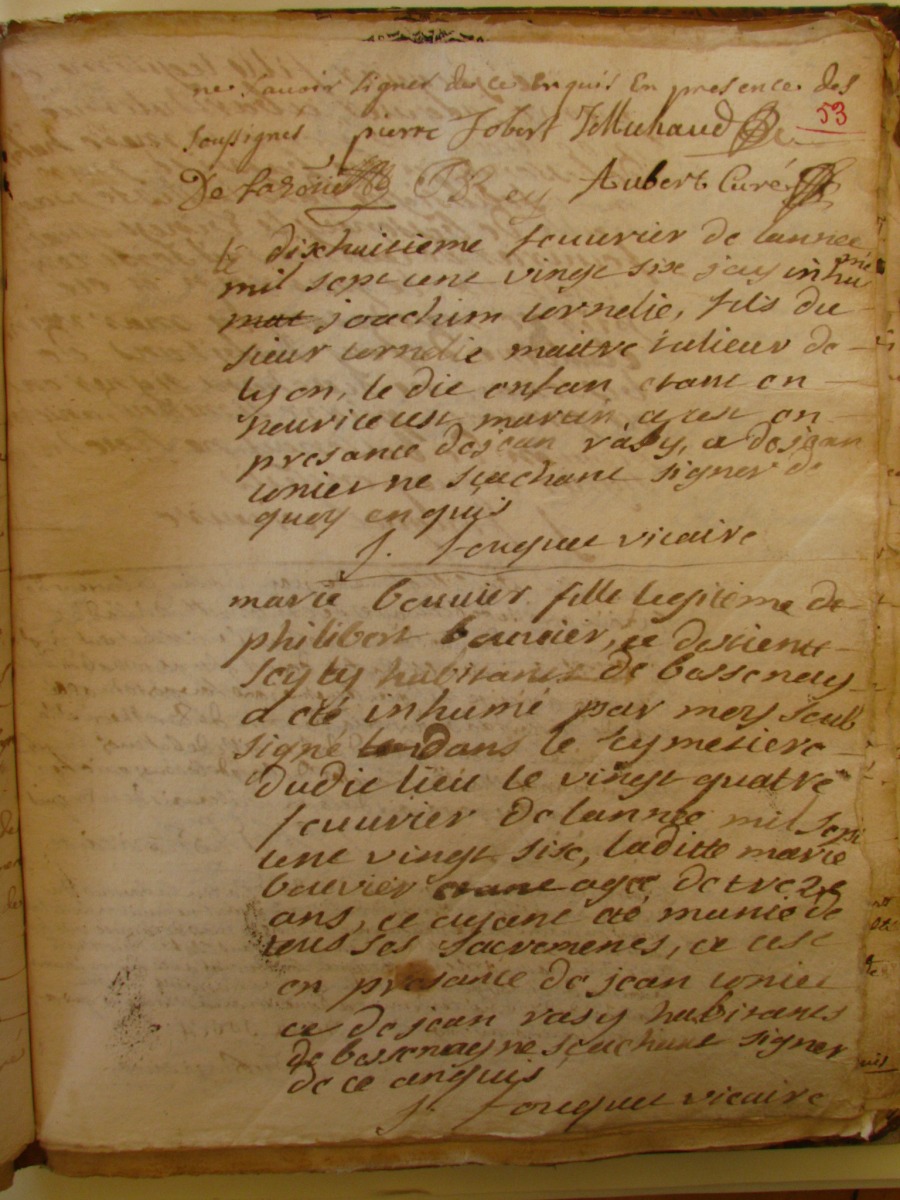 ne savoir signer de ce enquis En presence des
53
soussignes pierre Jobert JMichaud
Aubert Curé
le dixhuitieme feuurier de lannee
mil sept cent vingt six jay inhu
mat joachim cornelie, fils du
sieur cornelie maitre tulieur de
lyon, le dit enfan etant en
nourice est martin, a cest en
presance de jean rasy, a de jean
conier ne sçachant signer de
quoy enquis
f. fouquet vicaire
marie bouuier fille legiteme de
philibert bouuier, ce de etiennette
seyty habitants de bossenay
a eté inhumé par moy soub
signé dans le symetiere
dudit lieu le vingt quatre
feuurier de lannee mil sept
cent vingt six, laditte marie
bouvier etant agee de treze
ans, ce ayant eté munie de
tous ses sacrements, ce cest
en presance de jean conier
ce de jean rasy habitants
de bossenay ne sçachant signer
de ce anquis
f. fouquet vicaire